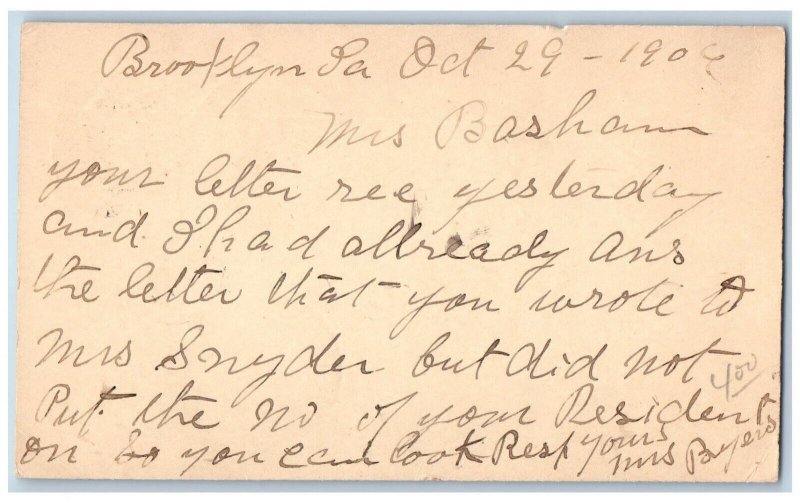 Brooklyn Ia Oct 29 - 1906
Mrs Basham
your letter rec yesterday
and I had allready ans
the letter that you wrote to
Mrs Snyder but did not
Put the no of your Resident
on So you can look Resp yours
Mrs Byers
400